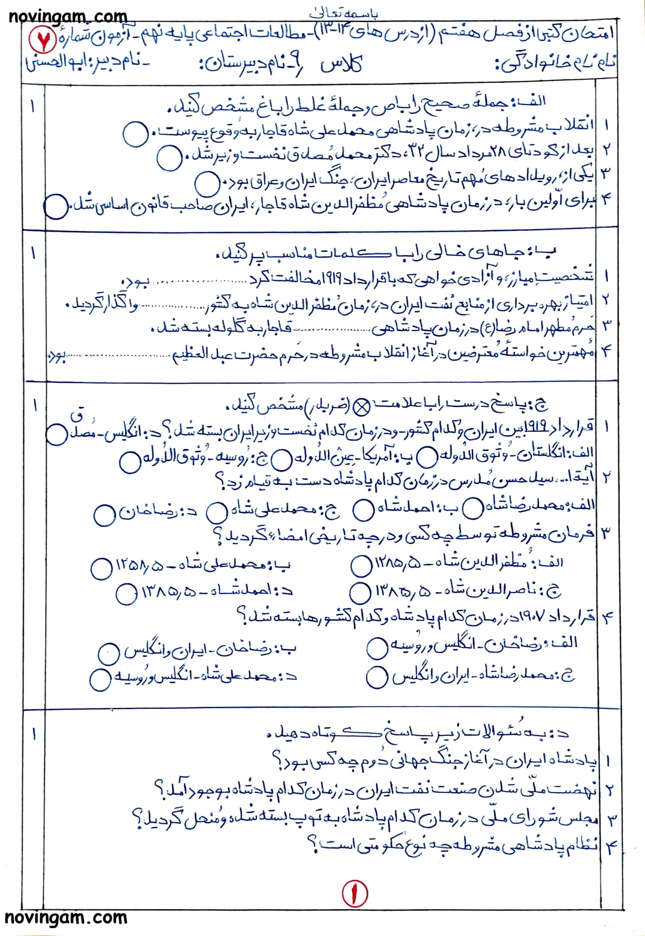 novingam.com
باسمه تعالیٰ
امتحان کتبی از فصل هفتم (از درس های ۱۴-۱۳)-مطالعات اجتماعی پایه نهم-آزمون شماره ۷
نام نام خانوادگی: کلاس ۹/ -نام دبیرستان: -نام دبیر: ابوالحسنی
الف: جملهٔ صحیح را با ص و جملهٔ غلط را با غ مشخص کنید. ۱
۱ انقلاب مشروطه در زمان پادشاهی محمد علی شاه قاجار به وقوع پیوست.
۲ بعد از کودتای ۲۸ مرداد سال ۳۲، دکتر محمد مُصدق نخست وزیر شد.
۳ یکی از رویدادهای مُهم تاریخ معاصر ایران، جنگ ایران و عراق بود.
۴ برای اولین بار، در زمان پادشاهی مُظفرالدین شاه قاجار، ایران صاحب قانون اساسی شد.
ب: جاهای خالی را با کلمات مناسب پر کنید. ۱
۱ شخصیت مبارز و آزادی خواهی که با قرارداد ۱۹۱۹ مخالفت کرد .................... بود.
۲ امتیاز بهره برداری از منابع نفت ایران در زمان مُظفرالدین شاه به کشور .............. واگذار گردید.
۳ حَرم مُطهر امام رضا(ع) در زمان پادشاهی .................. قاجار به گلوله بسته شد.
۴ مُهمترین خواستهٔ مُعترضین در آغاز انقلاب مشروطه در حَرم حضرت عبدالعظیم .................. بود.
ج: پاسخ درست را با علامت ⊗ (ضربدر) مشخص کنید. ۱
۱ قرارداد ۱۹۱۹ بین ایران و کدام کشور-و در زمان کدام نخست وزیر ایران بسته شد؟ د: انگلیس-مُصدق
الف: انگلستان-وُثوق الدُوله ب: آمریکا-عِینُ الدُوله ج: رُوسیه-وُثوق الدُوله
۲ آیةا... سید حسن مُدرس در زمان کدام پادشاه دست به قیام زد؟
الف: محمد رضا شاه ب: احمد شاه ج: محمد علی شاه د: رضاخان
۳ فرمان مشروطه توسط چه کسی و در چه تاریخی امضاء گردید؟
الف: مُظفرالدین شاه-۱۲۸۵٫۵ ب: محمد علی شاه-۱۲۵۸٫۵
ج: ناصرالدین شاه-۱۳۸۵٫۵ د: احمد شاه-۱۳۸۵٫۵
۴ قرارداد ۱۹۰۷ در زمان کدام پادشاه و کدام کشورها بسته شد؟
الف: رضاخان-انگلیس و رُوسیه ب: رضاخان-ایران و انگلیس
ج: محمد رضا شاه-ایران و انگلیس د: محمد علی شاه-انگلیس و رُوسیه
د: به سُئوالات زیر پاسخ کوتاه دهید. ۱
۱ پادشاه ایران در آغاز جنگ جهانی دُوم چه کسی بود؟
۲ نهضت ملّی شدن صنعت نفت ایران در زمان کدام پادشاه بوجود آمد؟
۳ مجلس شورای ملّی در زمان کدام پادشاه به توپ بسته شده و مُنحل گردید؟
۴ نظام پادشاهی مشروطه چه نوع حکومتی است؟
۱
novingam.com